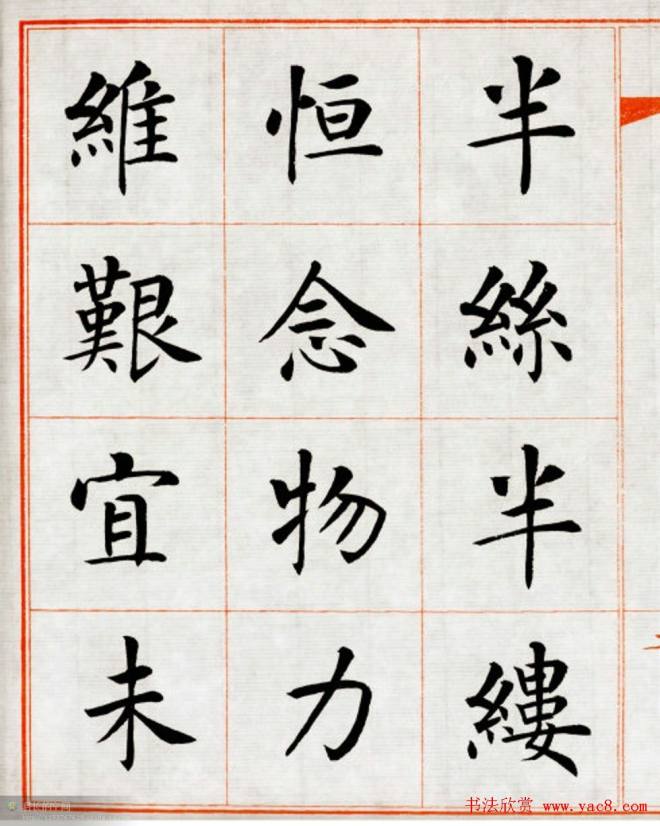 半絲半縷
恒念物力
維艱宜未
书法欣赏 www.yac8.com